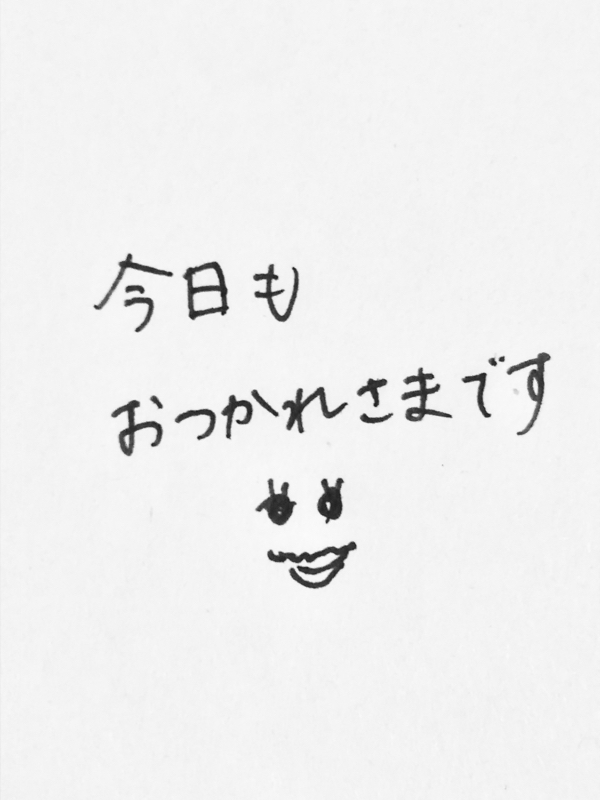 今日も
おつかれさまです